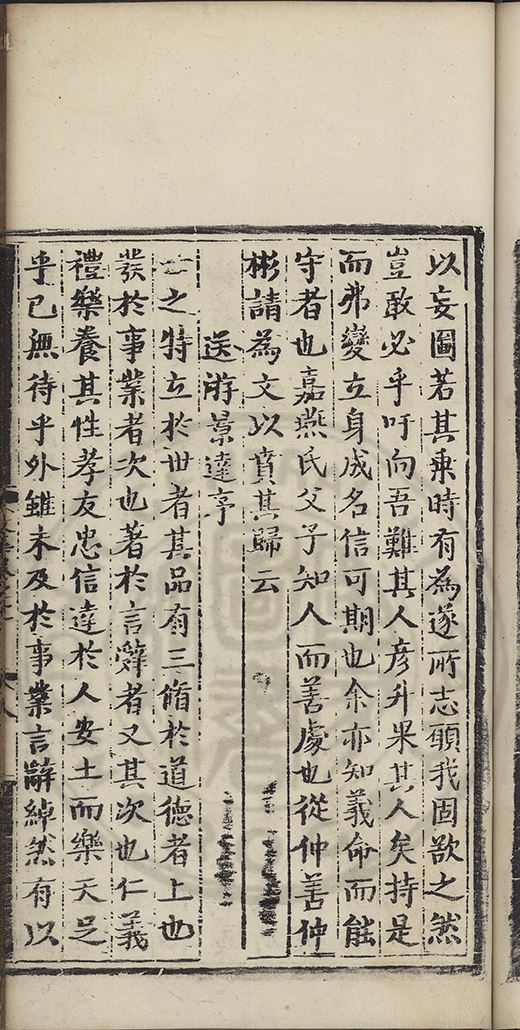 以妄圖若其乗時有為遂所志願我固欲之然
豈敢必乎吁向吾難其人彦升果其人矣持是
而弗變立身成名信可期也余亦知義命而能
守者也嘉燕氏父子知人而善處也從仲善仲
彬請為文以賁其歸云
送游景達序
之特立於世者其品有三脩於道德者上也
發於事業者次也著於言辭者又其次也仁義
禮樂養其性孝友忠信達於人安土而樂天足
乎已無待乎外雖未及於事業言辭綽然有以